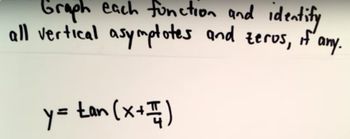 Graph each function and identify
all vertical asymptotes and zeros, if any.
y = tan (x + π/4)